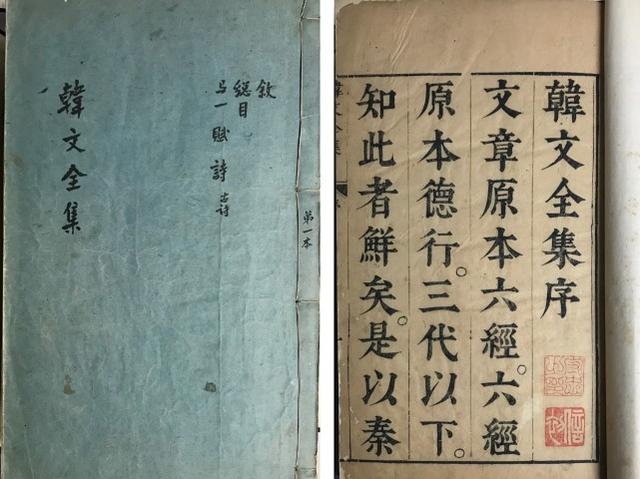 第一本
敘
總目
弓一賦詩古詩
韓文全集
韓文全集序
文章原本六經。六經
原本德行。三代以下。
知此者鮮矣。是以秦
韓文全集